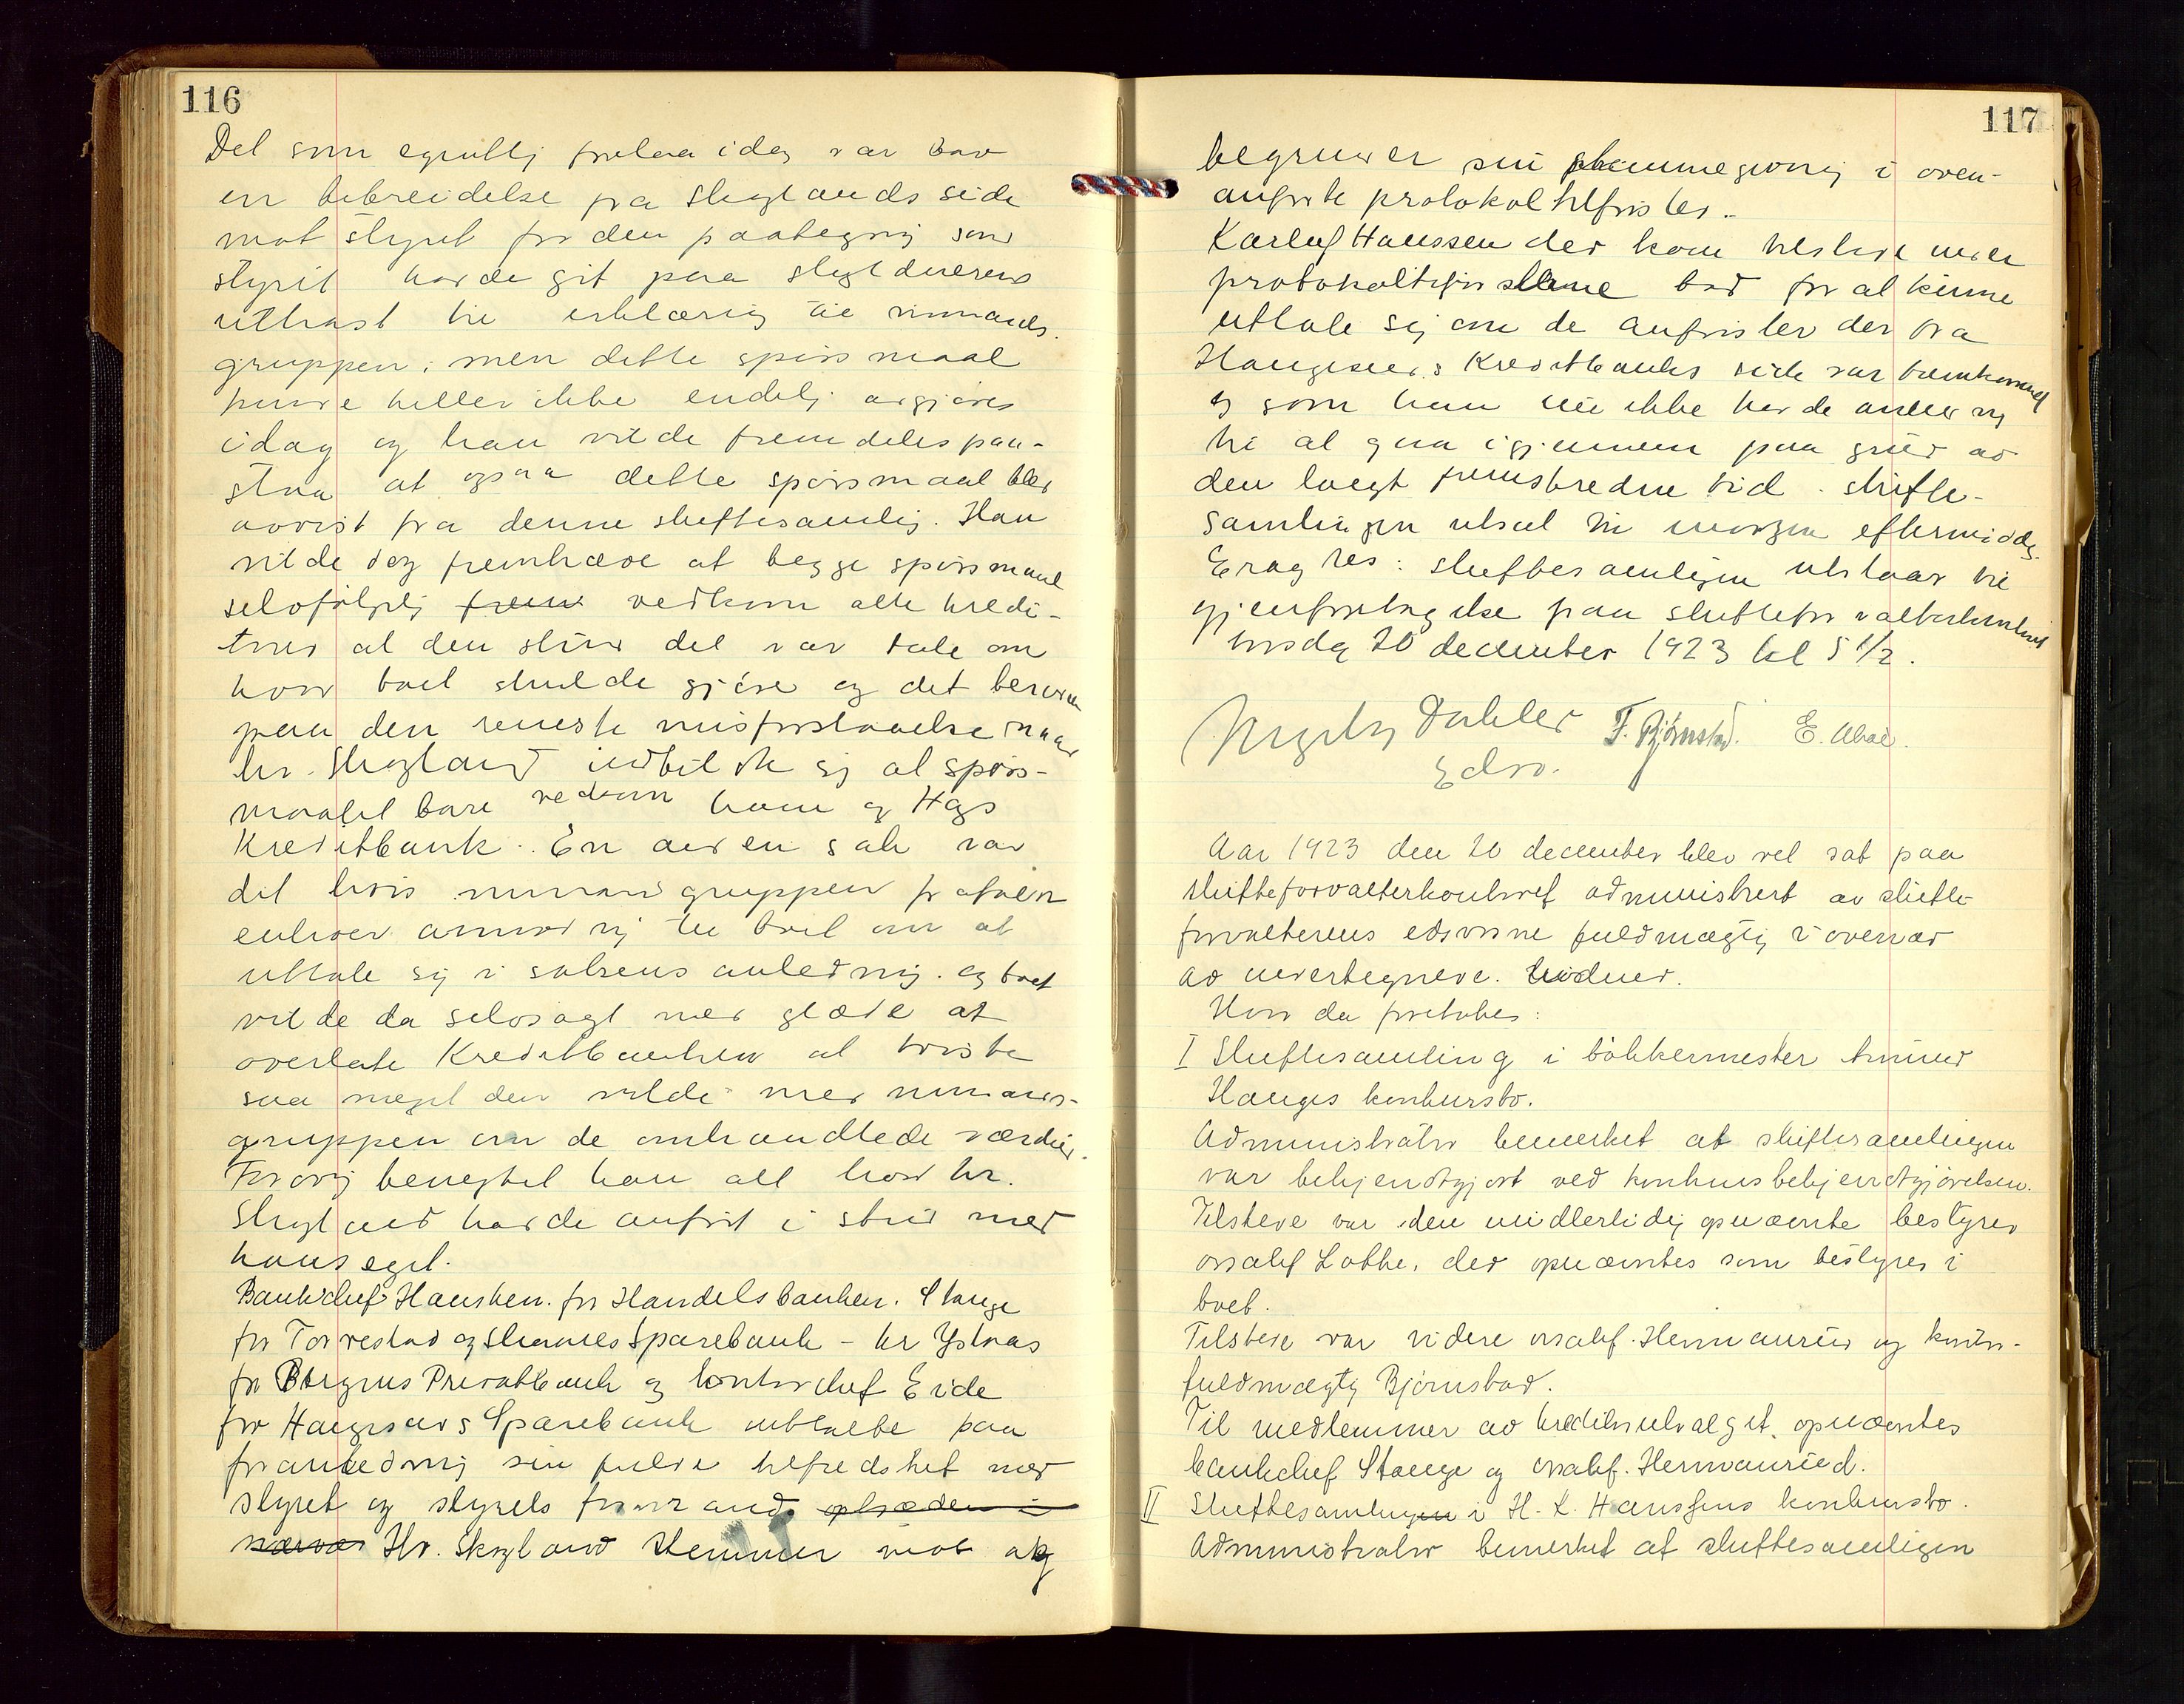 116
Det som egentlig forelaa idag var bare
en bebreidelse fra Skoglands side
mot styret for den paategning som
styret hadde git paa skyldnerens
utkast til erklæring til nimands-
gruppen; men dette spørsmaal
kunde heller ikke endelig avgjøres
idag og han vilde fremdeles paa-
staa at ogsaa dette spørsmaal blev
avvist fra denne skiftesamling. Han
vilde dog fremhæve at begge spørsmaal
selvfølgelig vedkom alle kredi-
torer al den stund det var tale om
hvad boet skulde gjøre og det beror
paa den reneste misforstaaelse naar
hr. Skogland indbildte sig at spørs-
maalet bare vedkom ham og Hgs
Kreditbank. En anden sak var
det hvis nimandsgruppen frafalder
enhver anmodning til boet om at
uttale sig i sakens anledning og boet
vilde da selvsagt med glæde at
overlate Kreditbanken at tviste
saa meget den vilde med nimands-
gruppen om de omhandlede værdier.
Forøvrig benegtet han alt hvad hr.
Skogland hadde anført i strid med
hans eget.
Bankchef Hansken for Handelsbanken. Stange
for Torvestad og Skaares Sparebank - hr Ystaas
for Bergens Privatbank og kontorchef Eide
for Haugesunds Sparebank uttalte paa
foranledning sin fulde tilfredshet med
styret og styrets formand optræden i
nærvær Hr. Skogland stemmer mot og
117
begrunder sin stemmegivning i oven-
anførte protokoltilførsler.
Karluf Hanssen der kom tilstede under
protokoltilførslene bad for at kunne
uttale sig om de anførsler der fra
Haugesunds Kreditbanks side var fremkommet
og som han nu ikke hadde anledning
til at gaa igjennem paa grund av
den langt fremskredne tid. skifte-
samlingen utsat til imorgen eftermiddag.
Eragtes: skiftesamlingen utstaar til
gjenforetagelse paa skifteforvalterkontoret
torsdag 20 december 1923 kl 5 1/2.
Ingelg Dahler F. Bjørnstad. E.
Edsv.
Aar 1923 den 20 december blev ret sat paa
skifteforvalterkontoret administrert av skifte-
forvalterens edsvorne fuldmægtig i overvær
av undertegnede vidner.
Hvor da foretokes:
I Skiftesamling i bøkkermester Amund
Hauges konkursbo.
Administrator bemerket at skiftesamlingen
var bekjendtgjort ved konkursbekjendtgjørelsen.
Tilstede var den midlertidig opnævnte bestyrer
orsakf. Lothe, der opnævntes som bestyrer i
boet.
Tilstede var videre orsakf. Hermanrud og kontor-
fuldmægtig Bjørnstad.
Til medlemmer av kreditorutvalget opnævntes
bankchef Stange og orsakf. Hermanrud.
II Skiftesamlingen i H. K. Hanssens konkursbo.
Administrator bemerket at skiftesamlingen